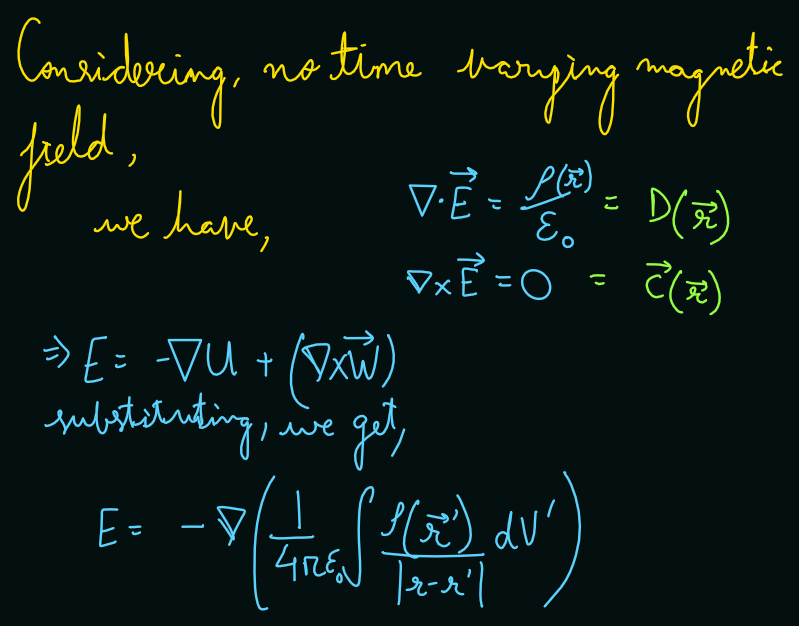 Considering, no time varying magnetic
field,
we have,
∇·E⃗ = ρ(r⃗)/ε₀ = D(r⃗)
∇×E⃗ = 0 = C⃗(r⃗)
⇒ E = -∇U + (∇×W⃗)
substituting, we get,
E = -∇(1/4πε₀ ∫ ρ(r⃗′)/|r-r′| dV′)